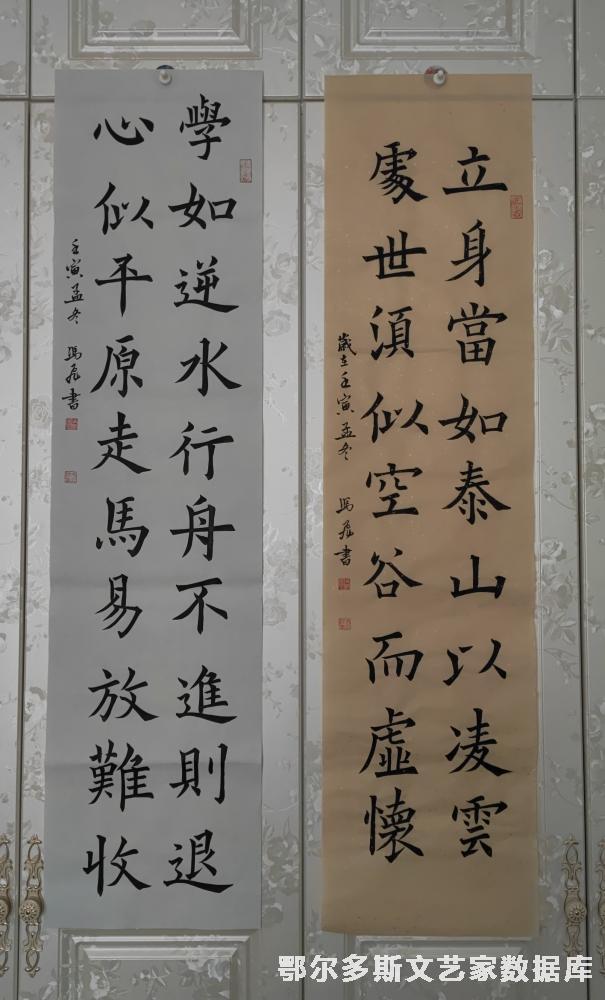 立身當如泰山以凌雲
處世須似空谷而虛懷
歲在壬寅孟冬 馮飛書
學如逆水行舟不進則退
心似平原走馬易放難收
壬寅孟冬 馮飛書
鄂尔多斯文艺家数据库